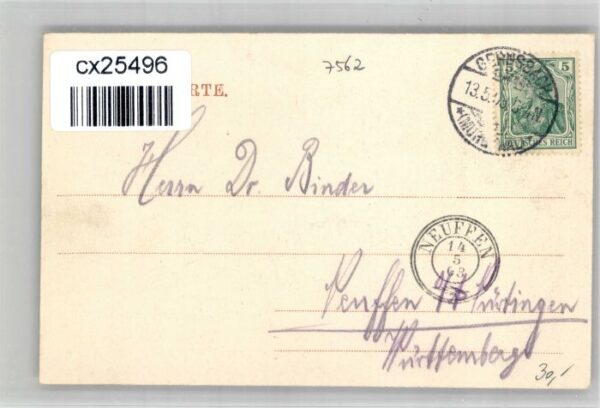 cx25496
7562
RTE.
GERNSBACH
13.5.
* (MURGTHAL)
5
DEUTSCHES REICH
Herrn Dr. Binder
NEUFFEN
14
5
03
Neuffen
Nürtingen
Württemberg
30,-